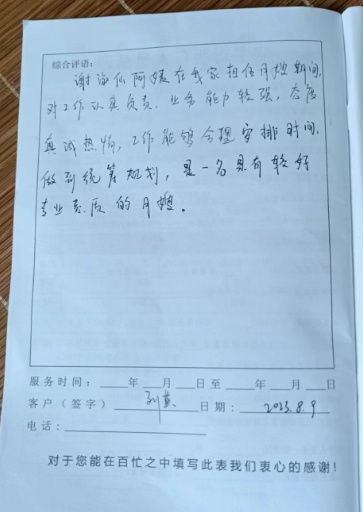 综合评语:
谢海仙阿姨在我家担任月嫂期间,
对工作认真负责,业务能力较强,态度
真诚热情,工作能够合理安排时间,
做到统筹规划,是一名具有较好
专业素质的月嫂。
服务时间:____年___月___日至____年___月___日
客户(签字) 日期: 2023.8.9
电话:
对于您能在百忙之中填写此表我们衷心的感谢!